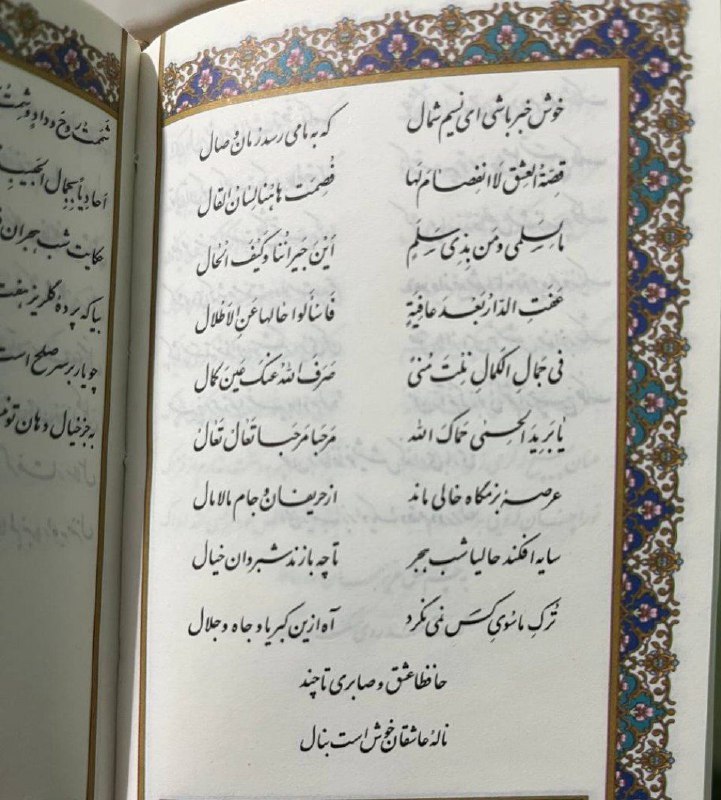 خوش خبر باشی ای نسیم شمال که به ما می رسد زمان وصال
قِصَّةُ العِشقِ لَا انفِصامَ لَها فُصِمَت هاهُنا لِسانُ القال
ما لِسَلمی و مَن بِذی سَلَمِ اَینَ جیرانُنا وَ کَیفَ الحال
عَفَتِ الدّارُ بَعدَ عافِیَةٍ فَاسألوا حالَها عَنِ الاَطلال
فی جَمالِ الکَمالِ نِلتَ مُنیً صَرَفَ اللّهُ عَنکَ عَینَ کَمال
یا بَریدَ الحِمی حَماکَ الله مَرحَبا مَرحَبا تَعالَ تَعال
عرصهٔ بزمگاه خالی ماند از حریفان و جام مالامال
سایه افکند حالیا شب هجر تا چه بازند شبروان خیال
تُرکِ ما سوی کَس نمی نگرد آه ازین کبریا و جاه و جلال
حافظا عشق و صابری تا چند
نالهٔ عاشقان خوش است بنال
حکایت شب هجران
بیا که پردهٔ گلریز هفت
چو یار بر سر صلح است
به جز خیال دهان تو